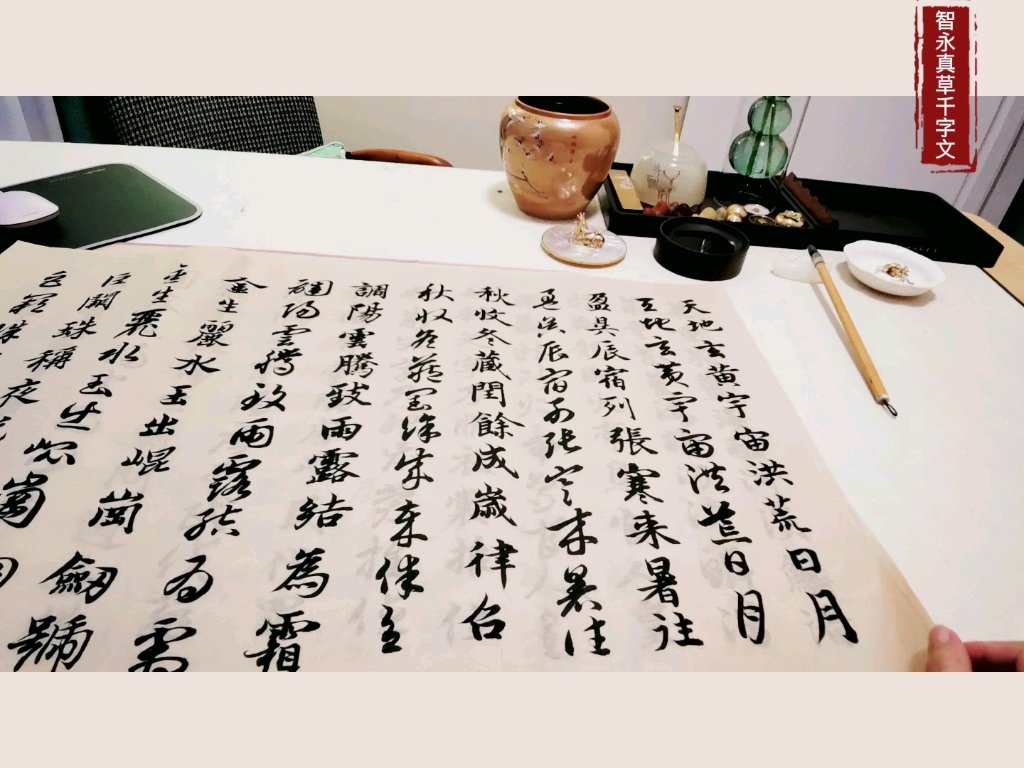 智永真草千字文
天地玄黄宇宙洪荒日月
天地玄黄宇宙洪荒日月
盈昃辰宿列張寒来暑往
盈昃辰宿列张寒来暑往
秋收冬藏閏餘成歲律吕
秋收冬藏閏餘成歲律吕
調陽雲騰致雨露結為霜
調陽雲騰致雨露結為霜
金生麗水玉出崐崗劒號
金生麗水玉出崐崗
巨闕珠稱夜
巨闕珠